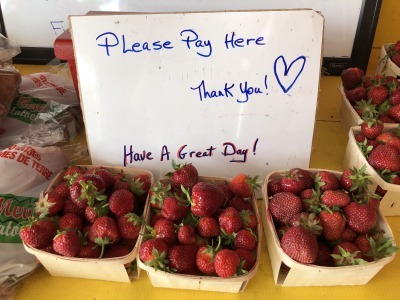 Please Pay Here
Thank You!
Have A Great Day!
DE TERRE